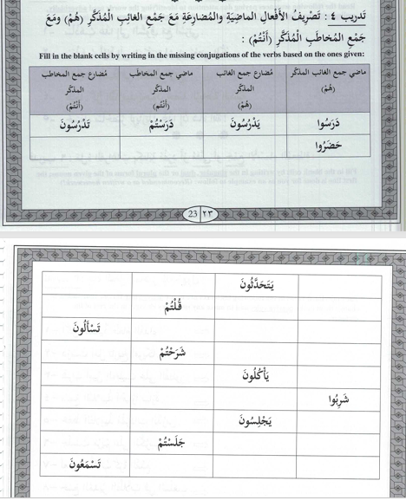 تدريب ٤ : تَصْرِيفُ الأَفْعالِ الماضِيَةِ والْمُضارِعَةِ مَعَ جَمْعِ الغائِبِ الْمُذَكَّرِ (هُمْ) ومَعَ
جَمْعِ الْمُخاطَبِ الْمُذَكَّرِ (أَنْتُمْ) :
Fill in the blank cells by writing in the missing conjugations of the verbs based on the ones given:
ماضي جمع الغائب المذكّر (هُمْ) مُضارع جمع الغائب المذكّر (هُمْ) ماضي جمع المخاطب المذكّر (أنتُم) مُضارع جمع المخاطب المذكّر (أَنْتُمْ)
دَرَسُوا يَدْرُسُونَ دَرَسْتُمْ تَدْرُسُونَ
حَضَرُوا
23 ٢٣
يَتَحَدَّثُونَ
قُلْتُمْ
تَسْأَلُونَ
شَرَحْتُمْ
يَأْكُلُونَ
شَرِبُوا
يَجْلِسُونَ
جَلَسْتُمْ
تَسْمَعُونَ